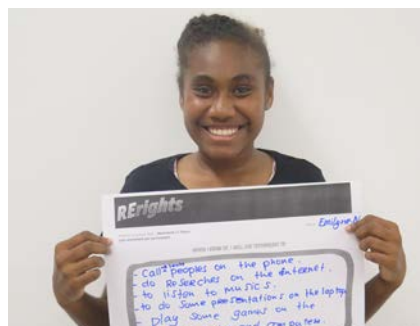 RErights
Emilyne N
- Call peoples on the phone.
- do Researches on the internet.
- to listen to musics.
- to do some presentations on the laptop
- Play some games on the
and computer.